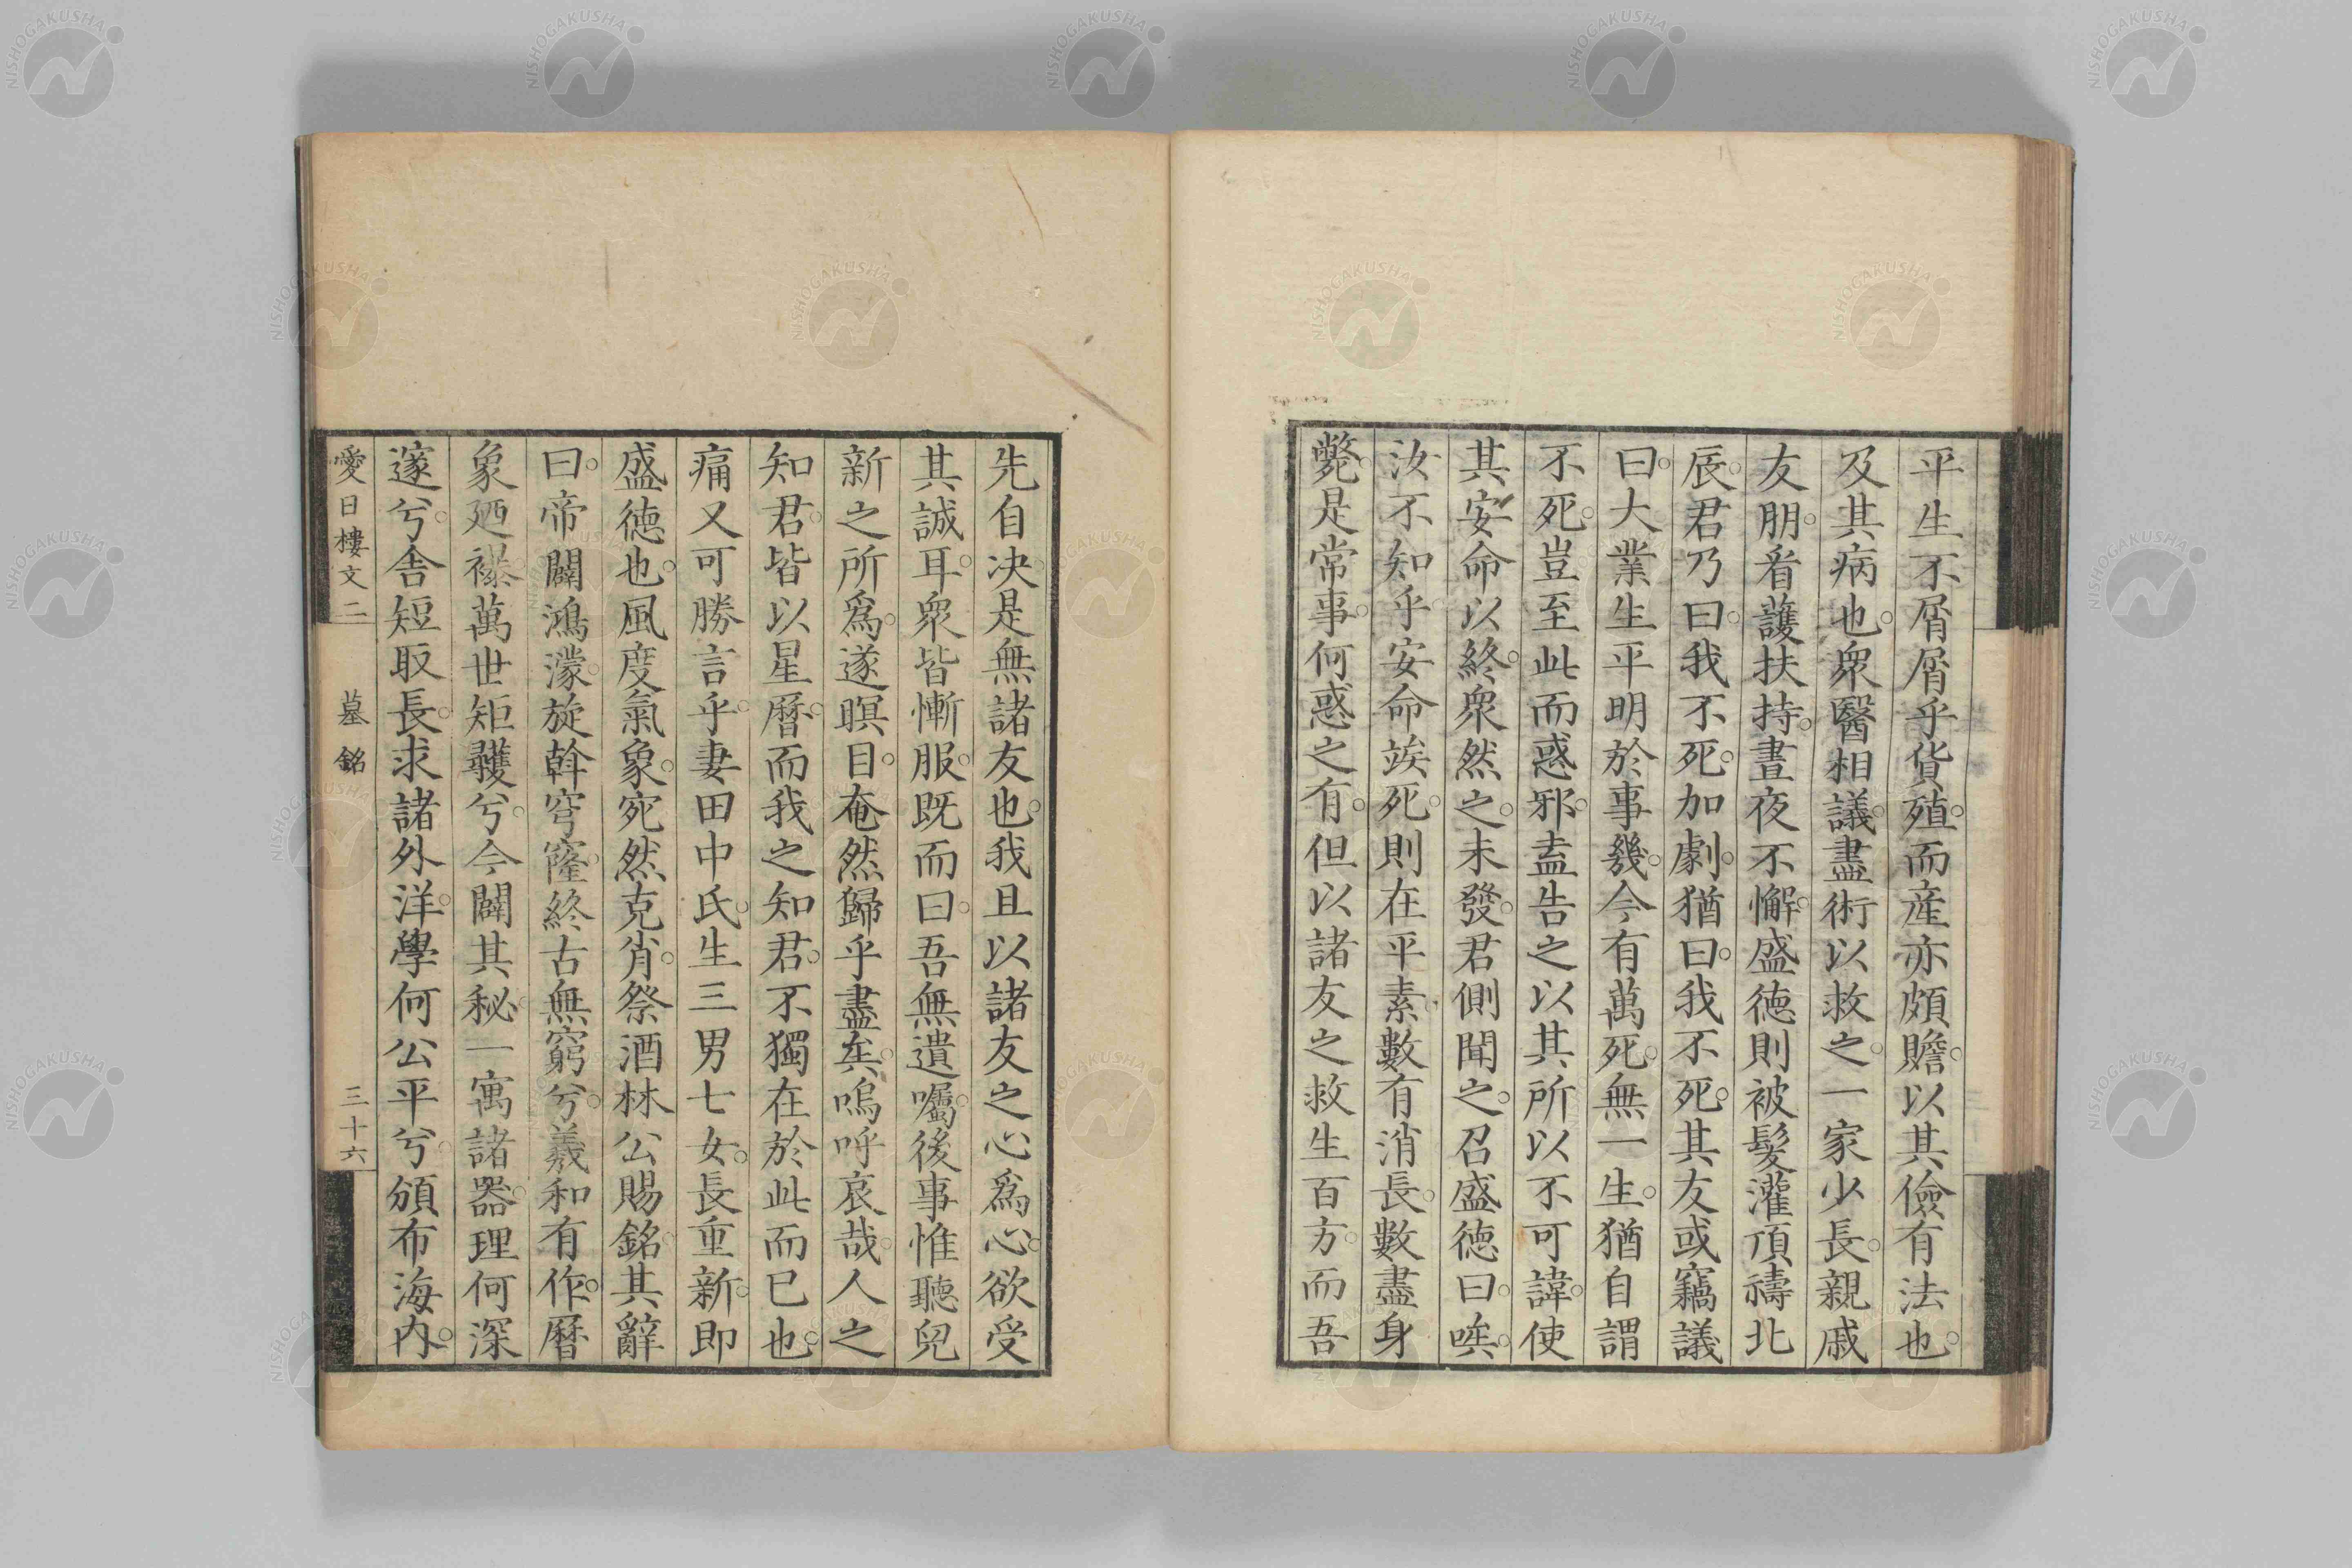 平生不屑屑乎貨殖。而産亦頗贍。以其儉有法也。
及其病也。衆醫相議。盡術以救之。一家少長。親戚
友朋。看護扶持。晝夜不懈。盛徳則被髮灌頂禱北
辰。君乃曰。我不死。加劇。猶曰。我不死。其友或竊議
曰。大業生平明於事幾。今有萬死。無一生。猶自謂
不死。豈至此而惑邪。盍告之以其所以不可諱。使
其安命以終。衆然之。未發。君側聞之。召盛徳曰。唉。
汝不知乎。安命竢死。則在平素。數有消長。數盡身
斃。是常事。何惑之有。但以諸友之救生百方。而吾
先自决。是無諸友也。我且以諸友之心爲心。欲受
其誠耳。衆皆慚服。既而曰。吾無遺囑。後事惟聽兒
新之所爲。遂瞑目。奄然歸乎盡矣。嗚呼哀哉。人之
知君。皆以星曆。而我之知君。不獨在於此而已也。
痛又可勝言乎。妻田中氏。生三男七女。長重新。即
盛徳也。風度氣象。宛然克肖。祭酒林公賜銘。其辭
曰。帝闢鴻濛。旋斡穹窿。終古無窮兮。羲和有作。曆
象廼襮。萬世矩矱兮。今闢其秘。一寓諸器。理何深
邃兮。舎短取長。求諸外洋。學何公平兮。頒布海内。
愛日樓文二　墓銘　三十六
NISHOGAKUSHA